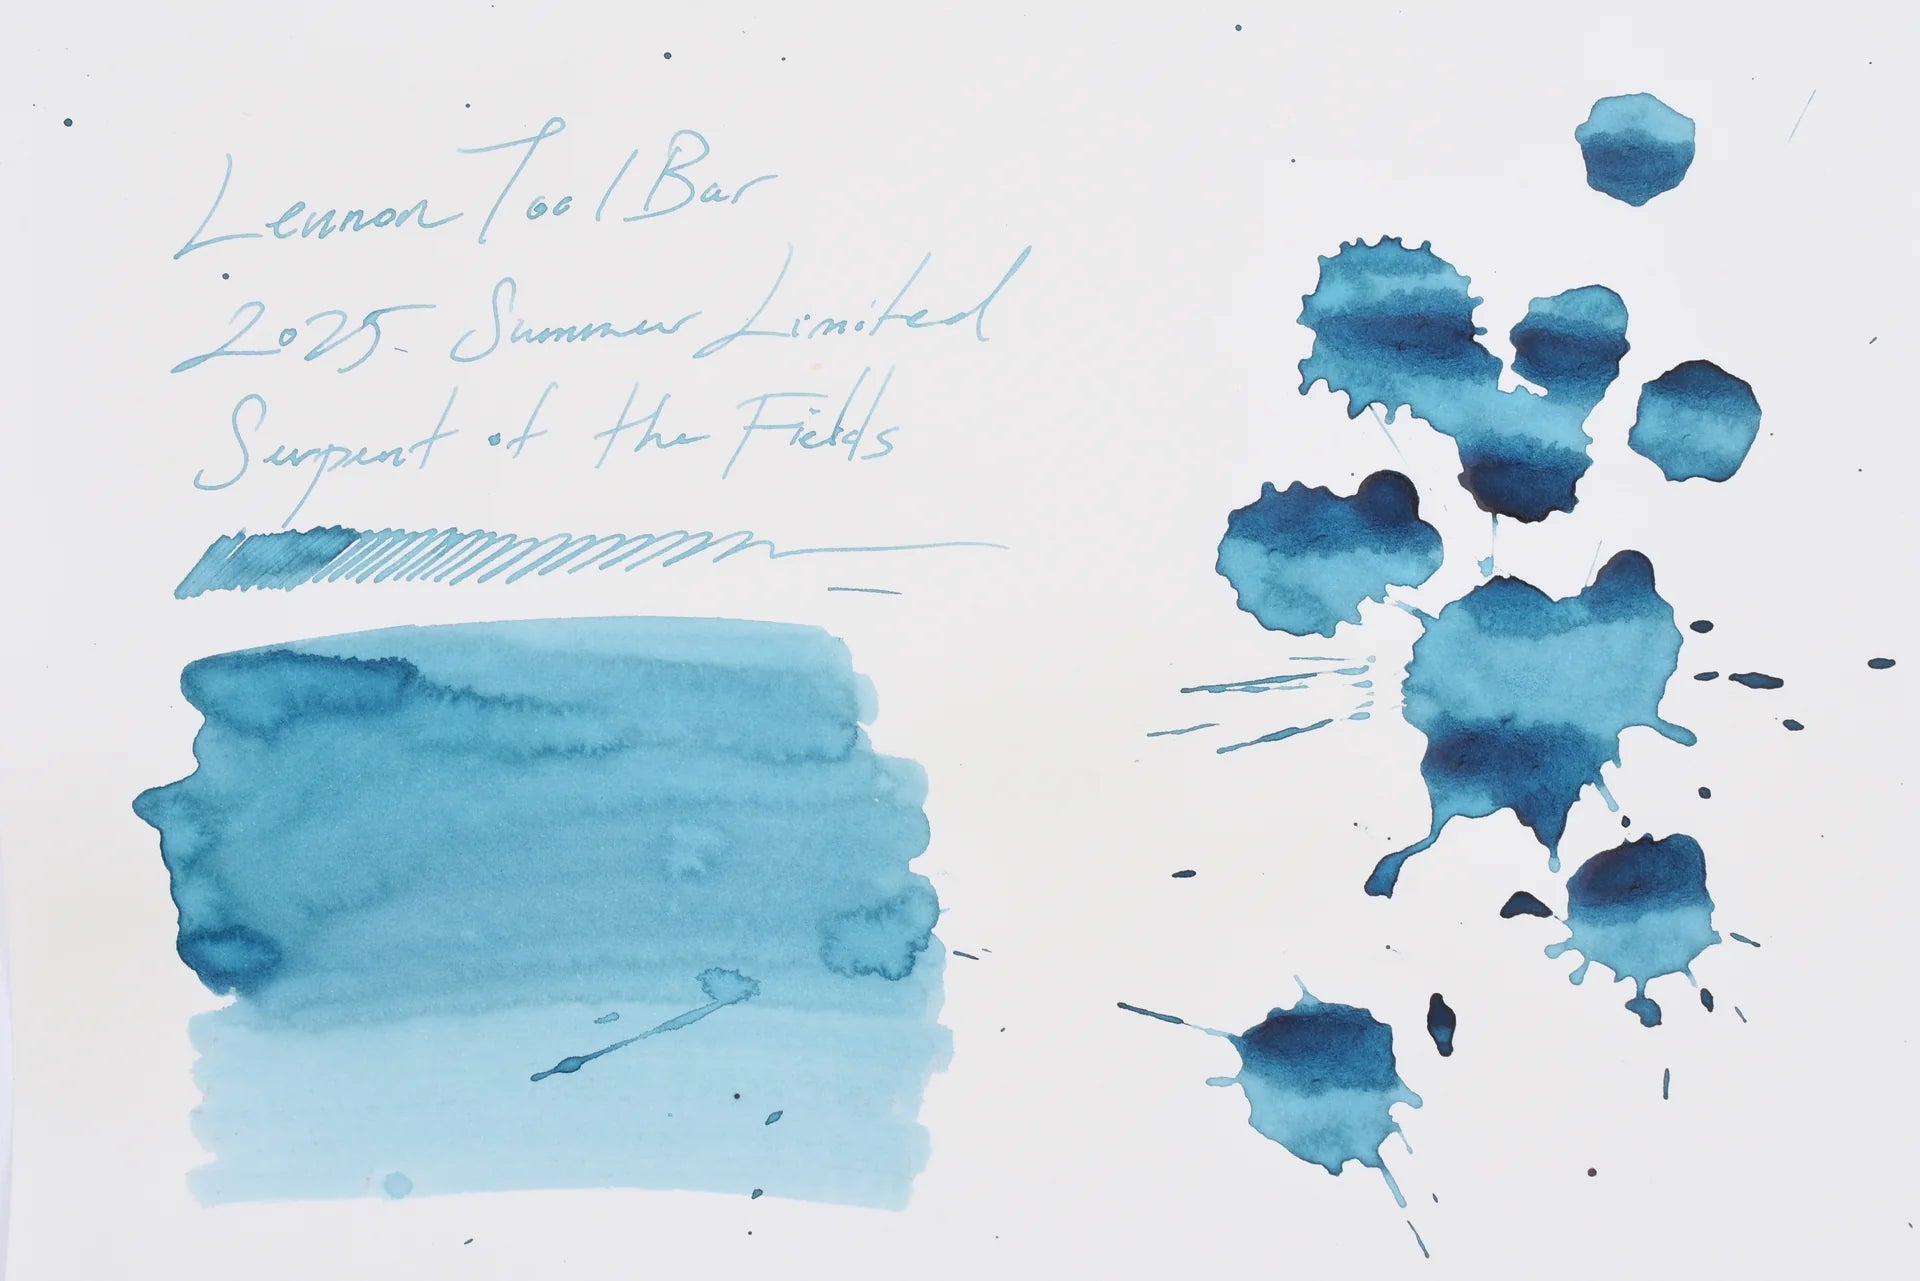 Lennon Tool Bar
2025 Summer Limited
Serpent of the Fields